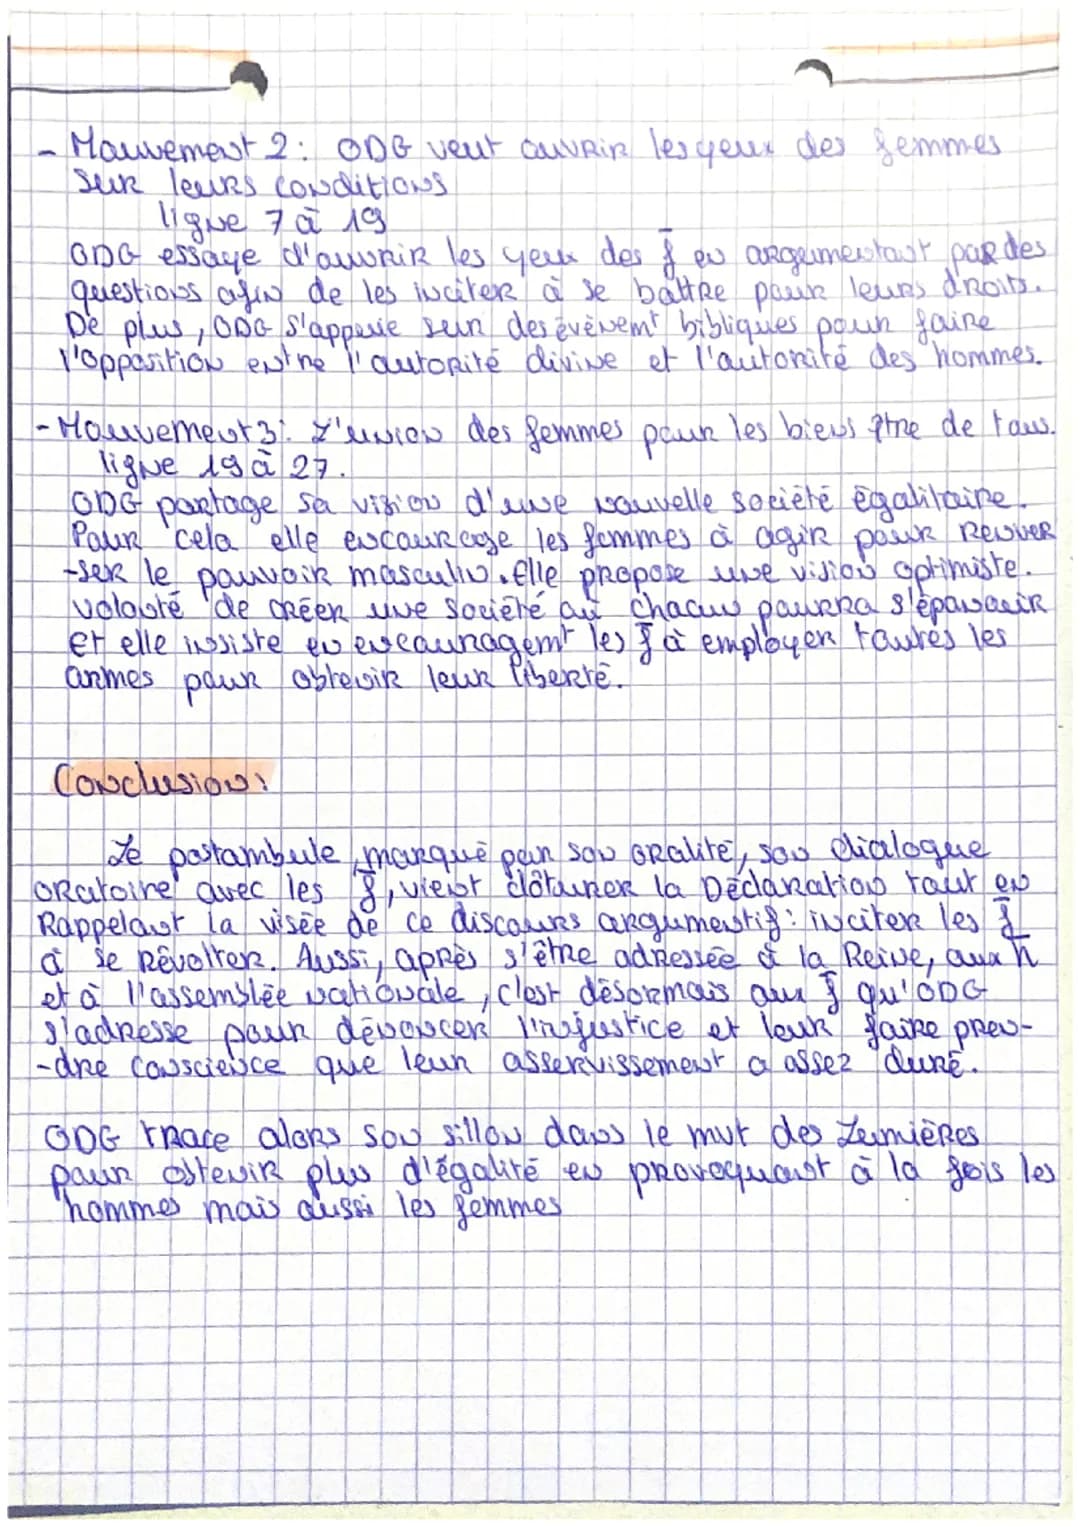 - Mouvement 2: ODG veut ouvrir les yeux des femmes
sur leurs conditions
ligne 7 à 19
ODG essaye d'ouvrir les yeux des f en argumentant par des
questions afin de les inciter à se battre pour leurs droits.
De plus, ODG s'appuie sur des évènemt bibliques pour faire
l'opposition entre l'autorité divine et l'autorité des hommes.
- Mouvement 3: L'union des femmes pour les biens être de tous.
ligne 19 à 27.
ODG partage sa vision d'une nouvelle société égalitaire.
Pour cela elle encourage les femmes à agir pour renver
-ser le pouvoir masculin. Elle propose une vision optimiste.
volonté de créer une société où chacun pourra s'épanouir
Et elle insiste en encouragemt les f à employer toutes les
armes pour obtenir leur liberté.
Conclusion:
Le postambule, marqué par son oralité, son dialogue
oratoire avec les f, vient clôturer la Déclaration tout en
Rappelant la visée de ce discours argumentif: inciter les f
à se révolter. Aussi, après s'être adressée à la Reine, aux h
et à l'assemblée nationale, c'est désormais aux f qu'ODG
s'adresse pour dénoncer l'injustice et leur faire pren-
-dre conscience que leur asservissement a assez duré.
ODG trace alors son sillon dans le mvt des Lumières
pour obtenir plus d'égalité en provoquant à la fois les
hommes mais aussi les femmes